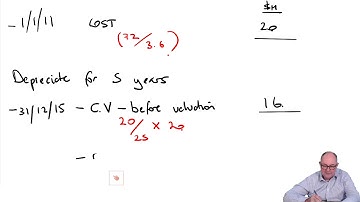 $M
- 1/1/11 COST 20
(72/3.6)
Depreciate for 5 years
- 31/12/15 - C.V - before valuation 16
20/25 x 20
-